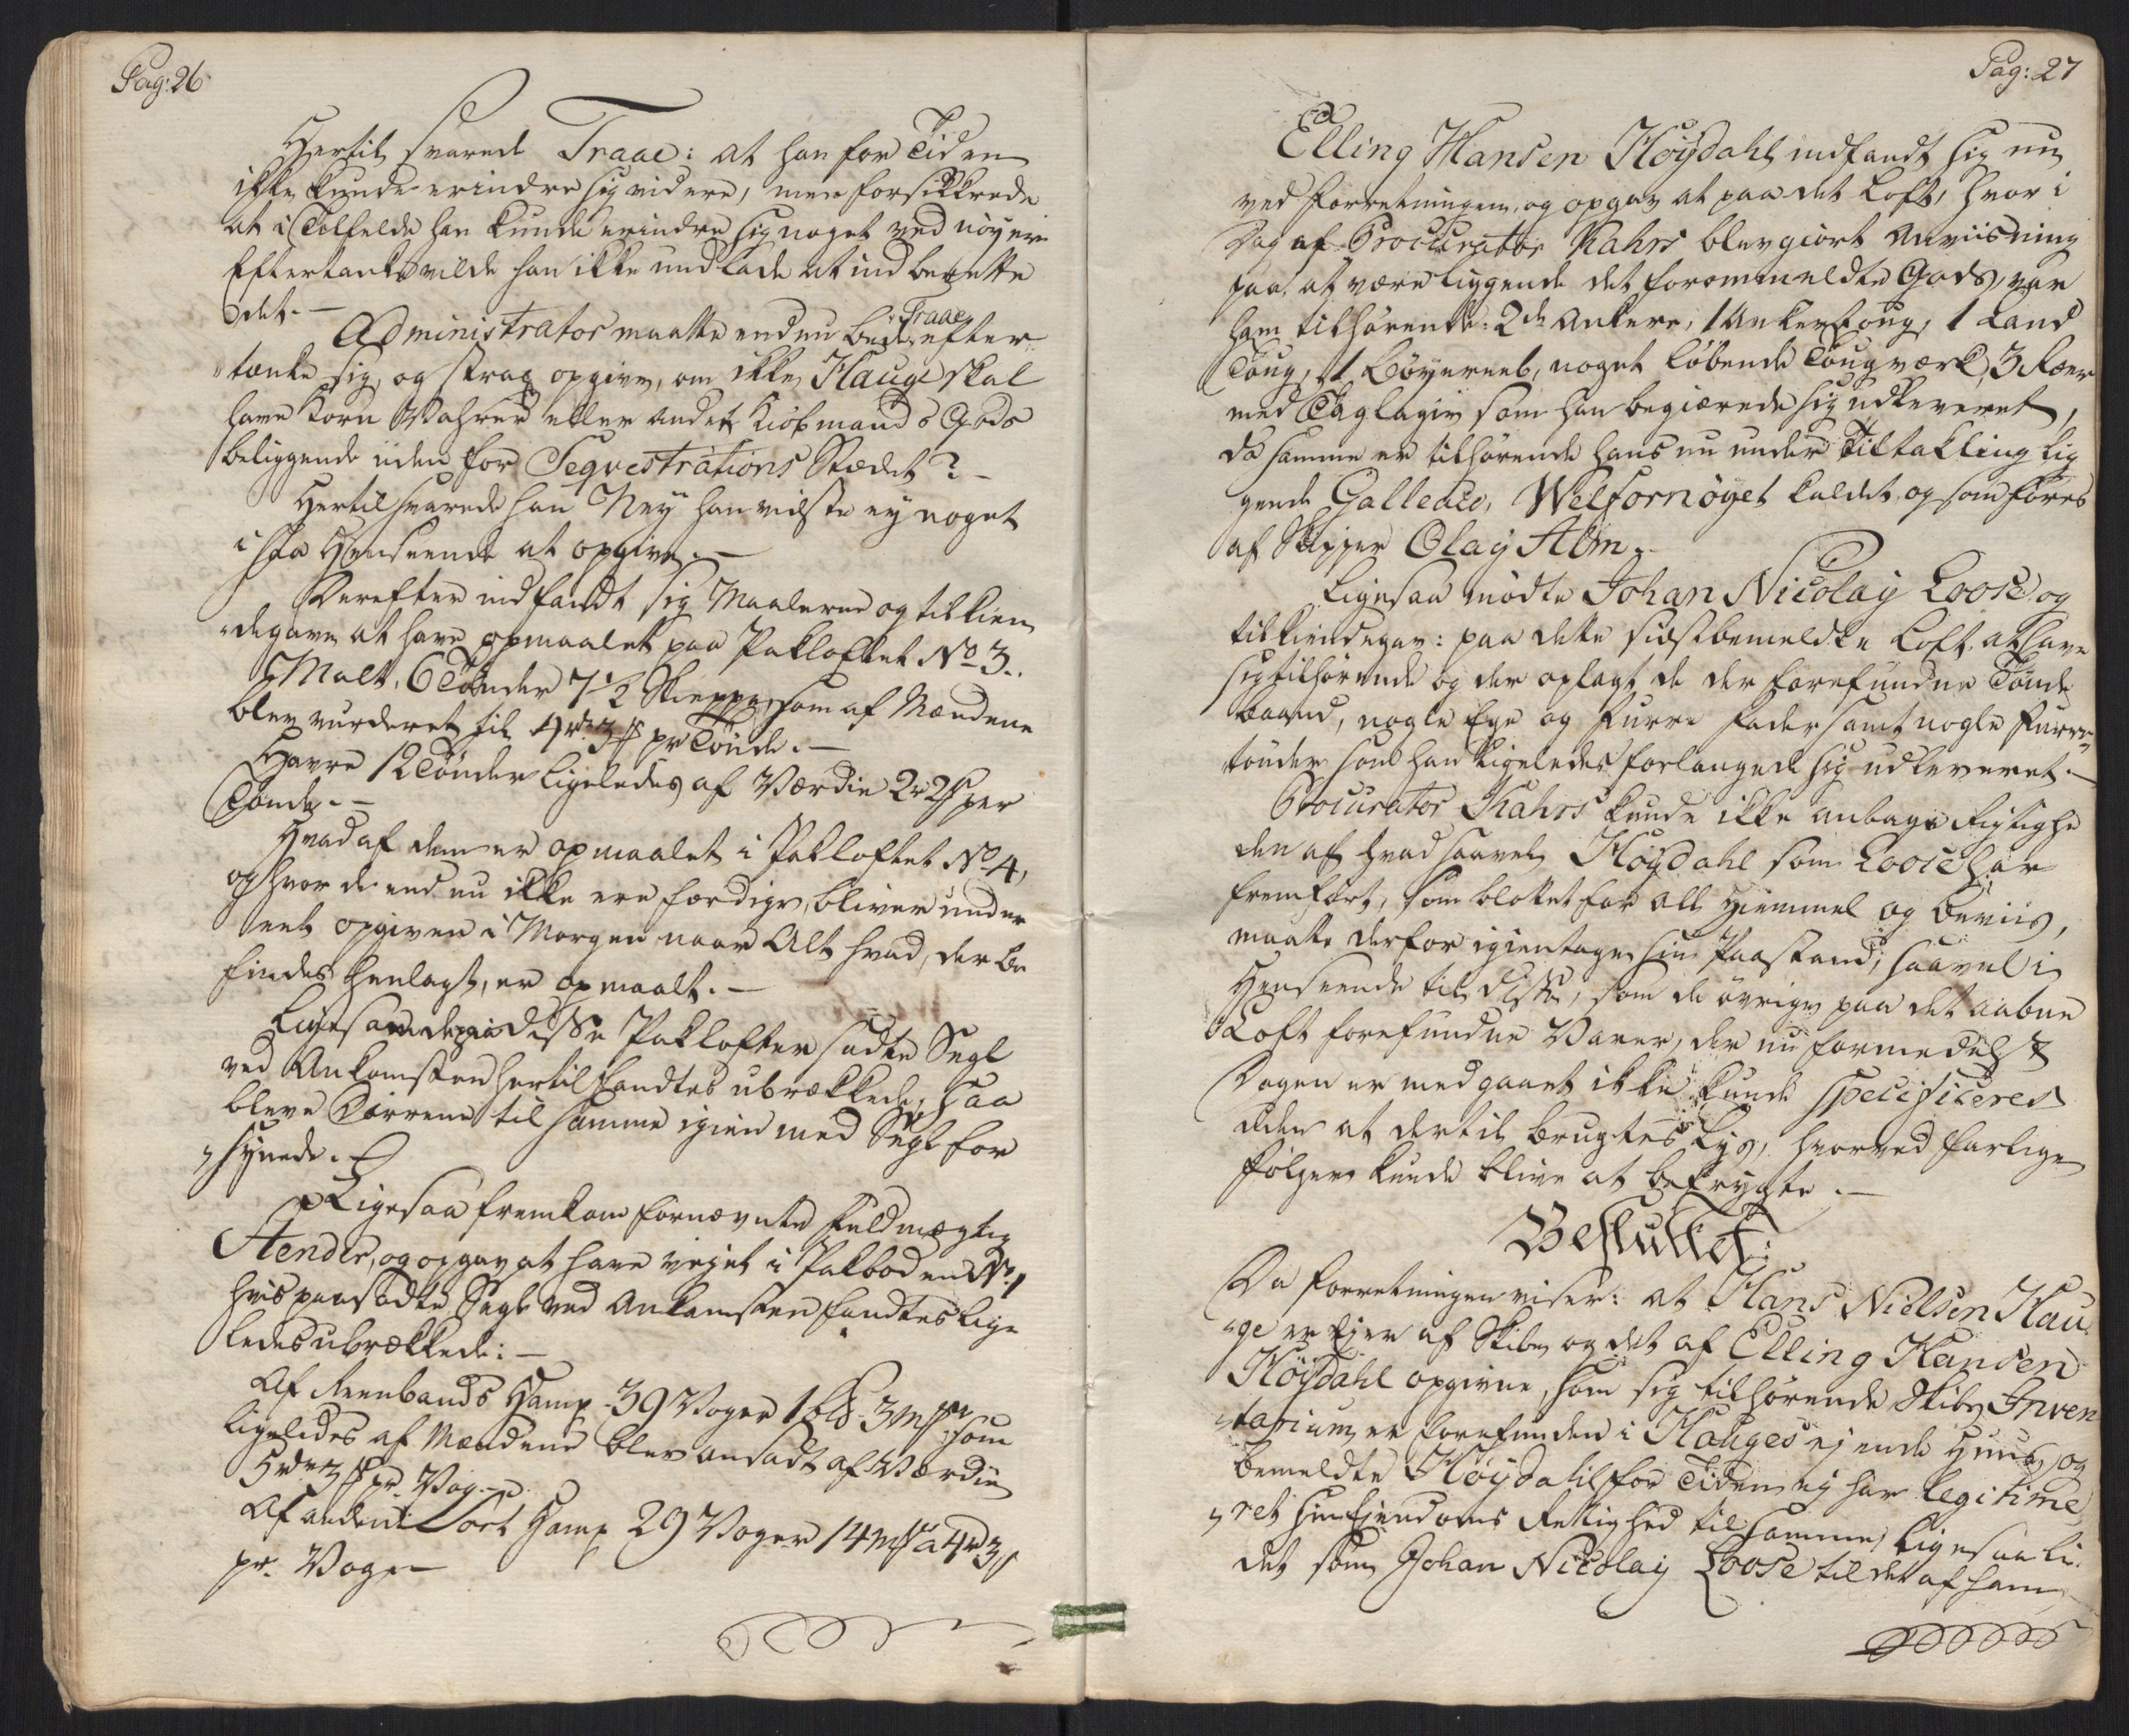 Pag: 26
Hertil svarede Traae: at han for Tiden
ikke kunde erindre sig videre, men forsikkrede
at i Tilfelde han kunde erindre sig noget ved nøyere
Eftertanke vilde han ikke undlade at indberette
det. —
Administrator maatte endnu bede Traae efter
"tænke sig, og strax opgive, om ikke Hauge skal
have Korn Vahrer eller andet Kiøbmands Gods
beliggende uden for Seqvestrations Stædet? —
Hertil svarede han Ney han vidste ey noget
i saa Henseende at opgive. —
Derefter indfandt sig Maalerne og tilkien
"degave at have opmaalet paa Pakloftet No 3.
Malt, 6 Tønder 7 1/2 Skieppe, som af Mændene
blev vurderet til 4rd 3 s pr Tønde. —
Havre 12 Tønder ligeledes af Værdie 2r 2 s per
Tønde. —
Hvad af dem er opmaalet i Pakloftet No 4,
og hvor de endnu ikke ere færdige, bliver under
eet opgiven i Morgen naar Alt hvad, der be
findes henlagt, er opmaalt. —
Ligesom de paa disse Paklofter sadte Segl
ved Ankomsten hertil fandtes ubrækkede, saa
bleve Dørrene til samme igien med Segl for
"synede.
Ligesaa fremkom fornævnte Fuldmægtig
Stender, og opgav at have vejet i Pakboden No 1
hvis paasadte Segl ved Ankomsten fandtes lige
ledes ubrækkede: —
Af Reenbands Hamp 39 Voger 1 bd 3 mk som
ligeledes af Mændene blev ansadt af Værdie
5rd 3 s pr. Vog. —
Af anden Sort Hamp 29 Voger 14 mk a 4rd 3 s
pr. Vog —
Pag: 27
Elling Hansen Høydahl indfandt sig nu
ved Forretningen, og opgav at paa det Loft, hvor i
Dag af Procurator Kahrs blev giort Anviisning
paa, at være liggende det forommeldte Gods, var
ham tilhørende: 2de Ankere, 1 Ankertoug, 1 Land
Toug, 1 Bøyereeb, noget løbende Tougværk, 3 Ræer
med Taglagie som han begiærede sig udleveret,
da samme er tilhørende hans nu under Tiltakling lig
gende Galleace, Welfornøyet kaldet, og som føres
af Skipper Olay Alm.
Ligesaa mødte Johan Nicolay Loose og
tilkiendegav: paa dette sidstbemeldte Loft, at have
sig tilhørende og der oplagt de der forefundne Tønde
baand, nogle Ege og Furre Fader samt nogle Furre
tønder som han ligeledes forlangede sig udleveret. —
Procurator Kahrs kunde ikke antage Rigtighe
den af hvad saavel Høydahl som Loose har
fremført, som blottet for all Hiemmel og Beviis,
maatte derfor igientage sin Paastand, saavel i
Henseende til disse, som de øvrige paa det aabne
Loft forefundne Varer, der nu formedelst
Dagen er medgaaet ikke kunde specificeres
uden at dertil brugtes Lys, hvorved farlige
Følger kunde blive at befrygte. —
Besluttet:
Da Forretningen viser: at Hans Nielsen Hau
"ge er Ejer af Skibe, og det af Elling Hansen
Høydahl opgivne, som sig tilhørende Skibs Inven
"tarium er forefunden i Hauges ejende Huus, og
bemeldte Høydahl for Tiden ej har legitime
"ret sin Eiendoms Rettighed til samme, ligesaa li
det som Johan Nicolay Loose til det af ham